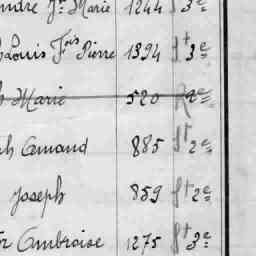 Jn Marie 1244 3e
Louis Fois Pierre 1394 St 3e
Marie 520 2e
Amand 885 St 2e
Joseph 859 St 2e
Ambroise 1275 St 3e